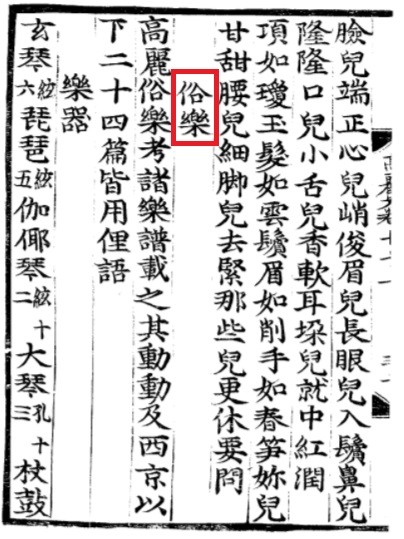 臉兒端正心兒峭俊眉兒長眼兒入鬢鼻兒
隆隆口兒小舌兒香軟耳垛兒就中紅潤
項如瓊玉髮如雲鬢眉如削手如春笋妳兒
甘甜腰兒細脚兒去緊那些兒更休要問
俗樂
高麗俗樂考諸樂譜載之其動動及西京以
下二十四篇皆用俚語
樂器
玄琴絃六琵琶絃五伽倻琴絃十二大琴孔十三杖鼓